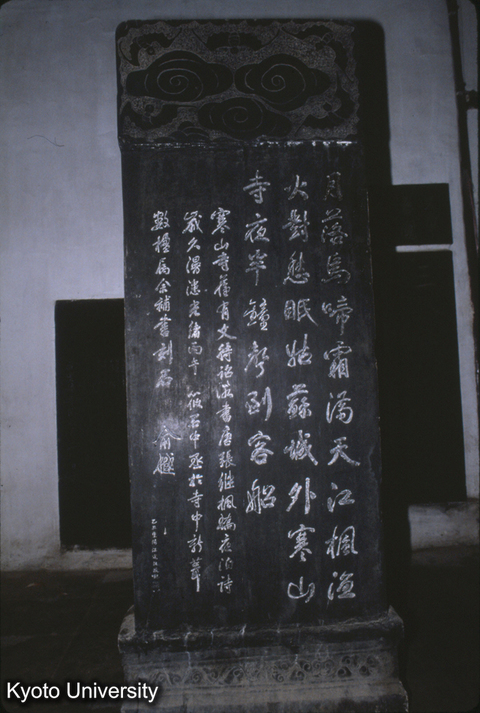 月落烏啼霜滿天江楓漁
火對愁眠姑蘇城外寒山
寺夜半鐘聲到客船
寒山寺舊有文待詔所書唐張繼楓橋夜泊詩
歲久漫漶光緒丙午筱石中丞於寺中新葺
數楹屬余補書刻石 俞樾
Kyoto University